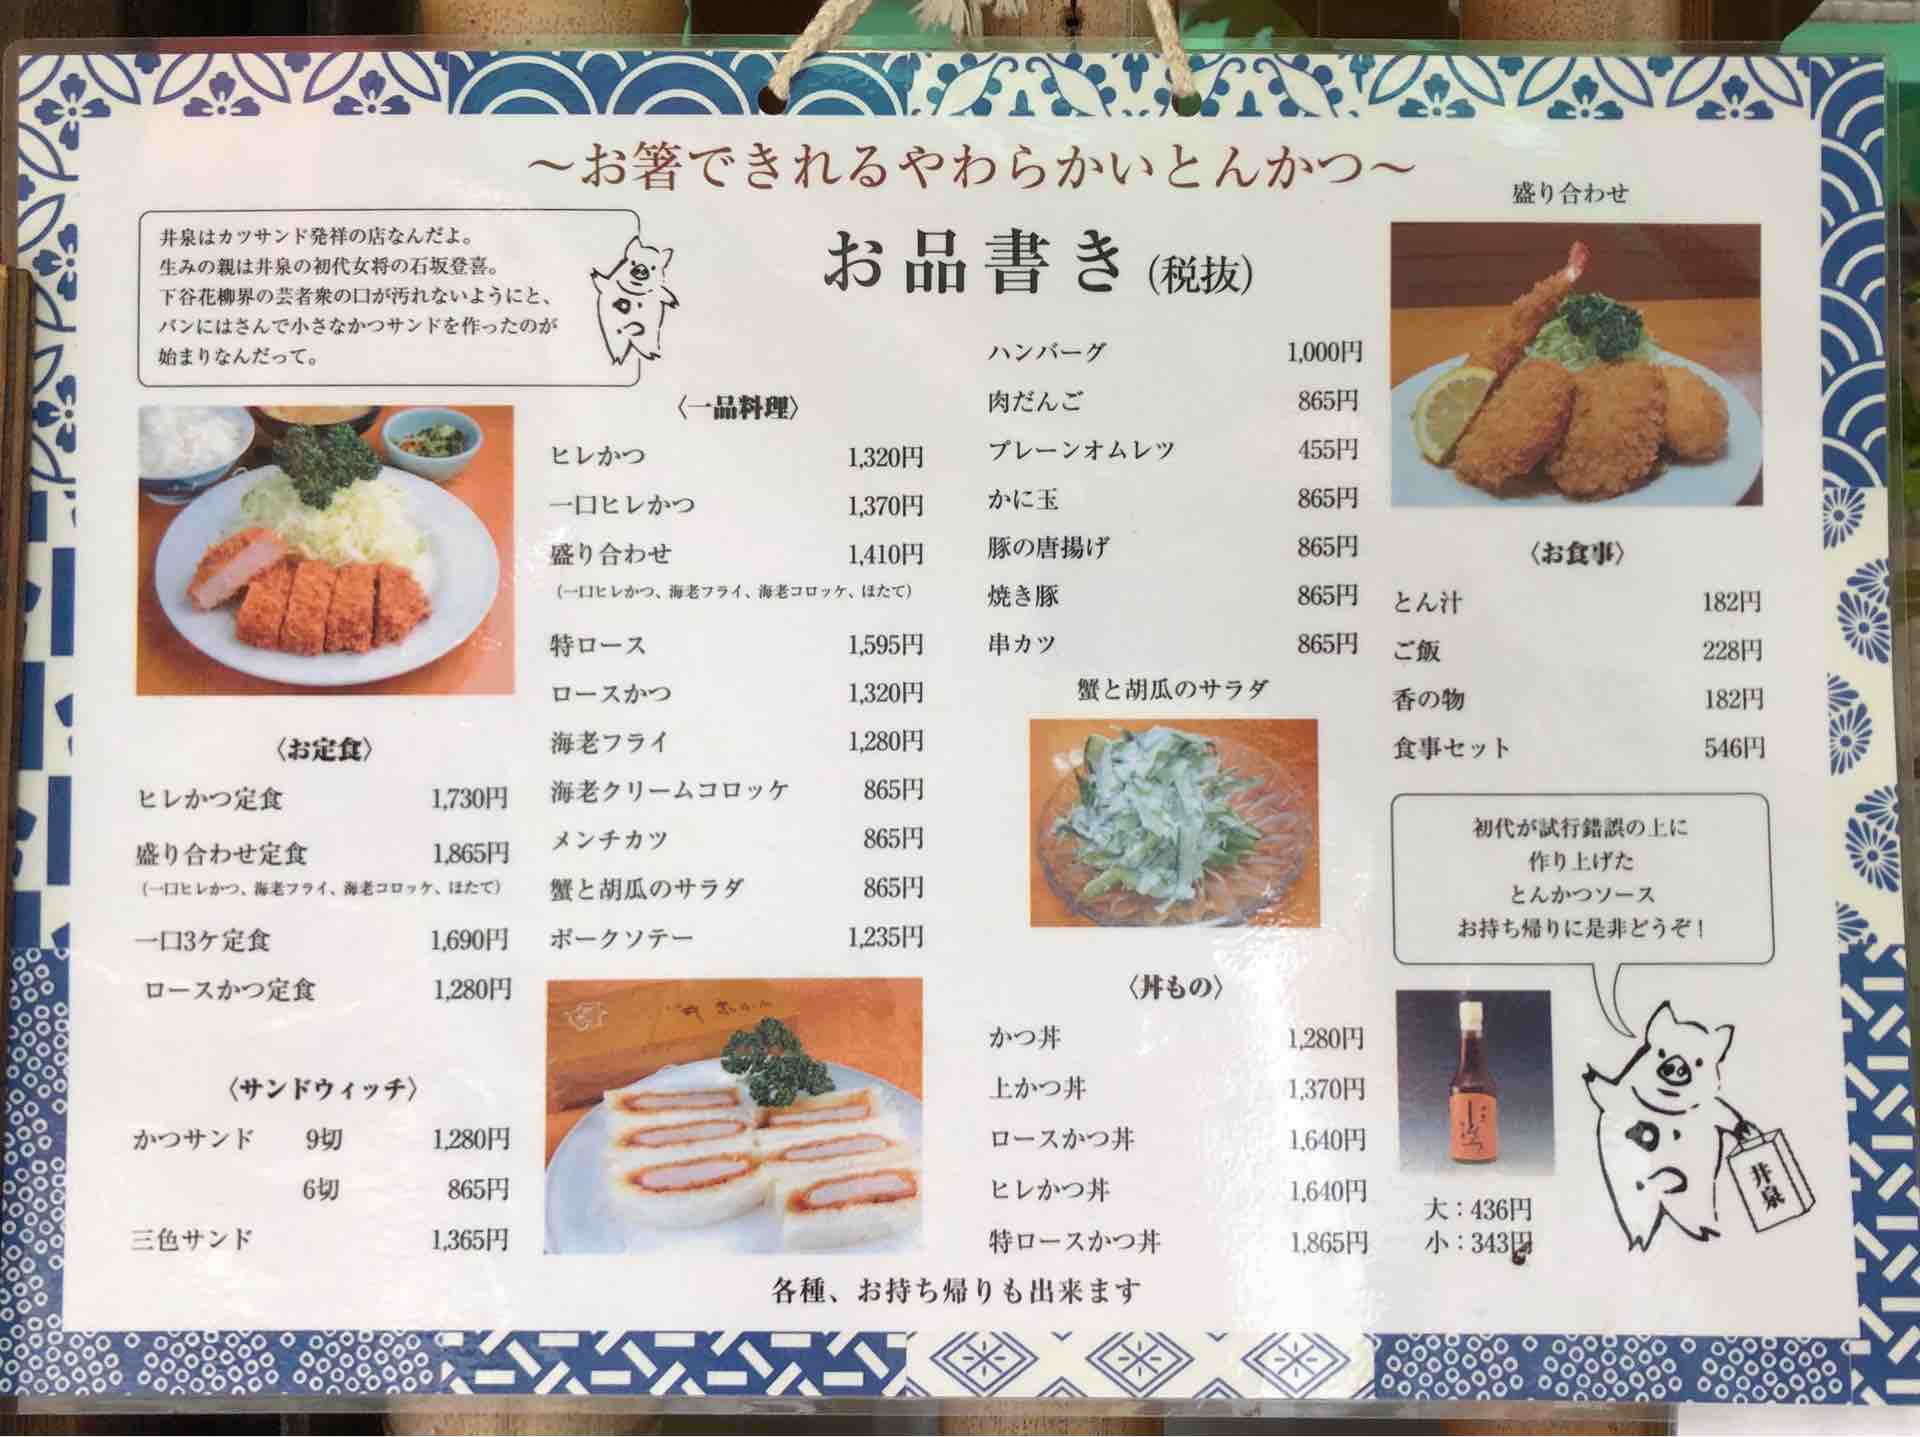 ～お箸できれるやわらかいとんかつ～
お品書き(税抜)
井泉はカツサンド発祥の店なんだよ。
生みの親は井泉の初代女将の石坂登喜。
下谷花柳界の芸者衆の口が汚れないようにと、
パンにはさんで小さなかつサンドを作ったのが
始まりなんだって。
かつ
〈お定食〉
ヒレかつ定食 1,730円
盛り合わせ定食 1,865円
(一口ヒレかつ、海老フライ、海老コロッケ、ほたて)
一口3ケ定食 1,690円
ロースかつ定食 1,280円
〈サンドウィッチ〉
かつサンド 9切 1,280円
6切 865円
三色サンド 1,365円
〈一品料理〉
ヒレかつ 1,320円
一口ヒレかつ 1,370円
盛り合わせ 1,410円
(一口ヒレかつ、海老フライ、海老コロッケ、ほたて)
特ロース 1,595円
ロースかつ 1,320円
海老フライ 1,280円
海老クリームコロッケ 865円
メンチカツ 865円
蟹と胡瓜のサラダ 865円
ポークソテー 1,235円
ハンバーグ 1,000円
肉だんご 865円
プレーンオムレツ 455円
かに玉 865円
豚の唐揚げ 865円
焼き豚 865円
串カツ 865円
蟹と胡瓜のサラダ
〈丼もの〉
かつ丼 1,280円
上かつ丼 1,370円
ロースかつ丼 1,640円
ヒレかつ丼 1,640円
特ロースかつ丼 1,865円
盛り合わせ
〈お食事〉
とん汁 182円
ご飯 228円
香の物 182円
食事セット 546円
初代が試行錯誤の上に
作り上げた
とんかつソース
お持ち帰りに是非どうぞ！
大：436円
小：343円
かつ
井泉
各種、お持ち帰りも出来ます